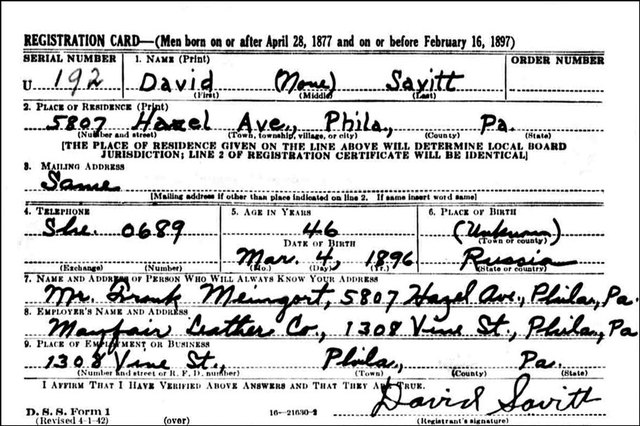 REGISTRATION CARD—(Men born on or after April 28, 1877 and on or before February 16, 1897)
SERIAL NUMBER 1. NAME (Print) ORDER NUMBER
U 192 David (None) Savitt
(First) (Middle) (Last)
2. PLACE OF RESIDENCE (Print)
5807 Hazel Ave., Phila., Pa.
(Number and street) (Town, township, village, or city) (County) (State)
[THE PLACE OF RESIDENCE GIVEN ON THE LINE ABOVE WILL DETERMINE LOCAL BOARD
JURISDICTION; LINE 2 OF REGISTRATION CERTIFICATE WILL BE IDENTICAL]
3. MAILING ADDRESS
Same
[Mailing address if other than place indicated on line 2. If same insert word same]
4. TELEPHONE 5. AGE IN YEARS 6. PLACE OF BIRTH
She. 0689 46 (Unknown)
DATE OF BIRTH (Town or county)
Mar. 4, 1896 Russia
(Exchange) (Number) (Mo.) (Day) (Yr.) (State or country)
7. NAME AND ADDRESS OF PERSON WHO WILL ALWAYS KNOW YOUR ADDRESS
Mr. Frank 5807 Hazel Ave., Phila., Pa.
8. EMPLOYER'S NAME AND ADDRESS
Mayfair Leather Co., 1308 Vine St., Phila., Pa
9. PLACE OF EMPLOYMENT OR BUSINESS
1308 Vine St., Phila., Pa.
(Number and street or R. F. D. number) (Town) (County) (State)
I AFFIRM THAT I HAVE VERIFIED ABOVE ANSWERS AND THAT THEY ARE TRUE.
David Savitt
D. S. S. Form 1
(Revised 4-1-42) (over) 16—21630-2 (Registrant's signature)